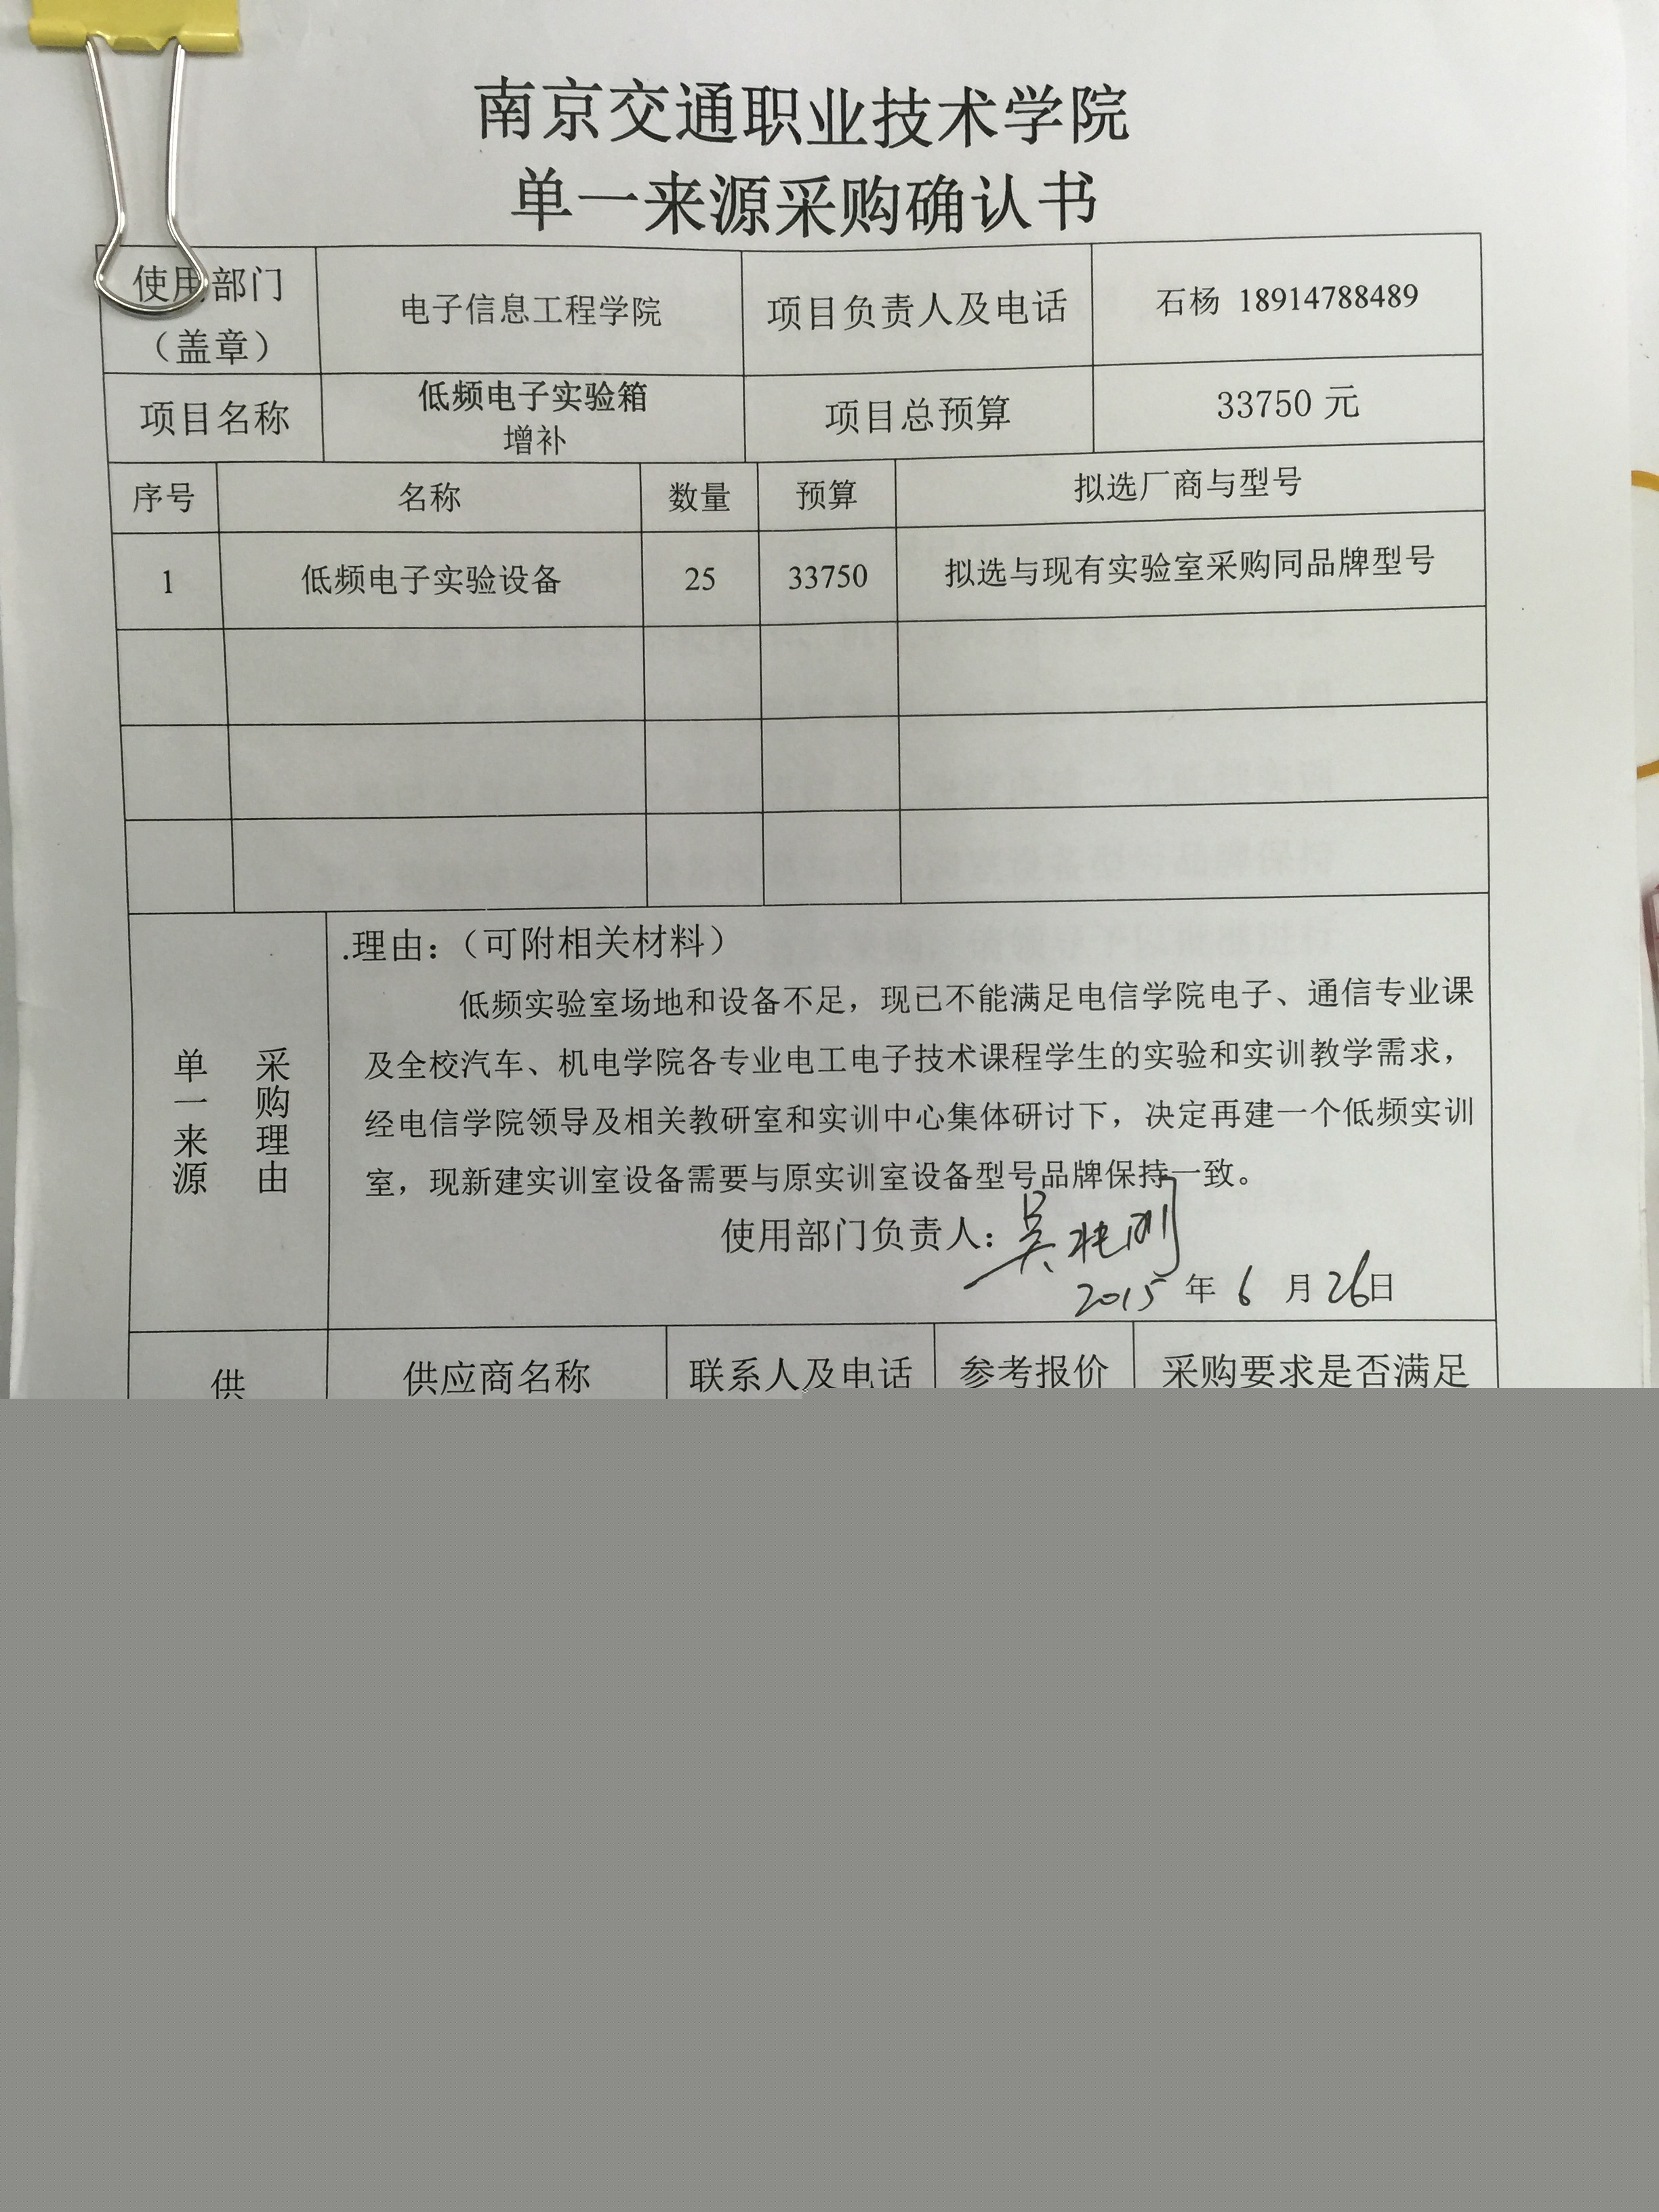 南京交通职业技术学院
单一来源采购确认书
使用部门
（盖章）
电子信息工程学院
项目负责人及电话
石杨 18914788489
项目名称
低频电子实验箱
增补
项目总预算
33750 元
序号 名称 数量 预算 拟选厂商与型号
1 低频电子实验设备 25 33750 拟选与现有实验室采购同品牌型号
单一来源
采购理由
.理由：（可附相关材料）
低频实验室场地和设备不足，现已不能满足电信学院电子、通信专业课
及全校汽车、机电学院各专业电工电子技术课程学生的实验和实训教学需求，
经电信学院领导及相关教研室和实训中心集体研讨下，决定再建一个低频实训
室，现新建实训室设备需要与原实训室设备型号品牌保持一致。
使用部门负责人：
2015 年 6 月 26日
供 供应商名称 联系人及电话 参考报价 采购要求是否满足